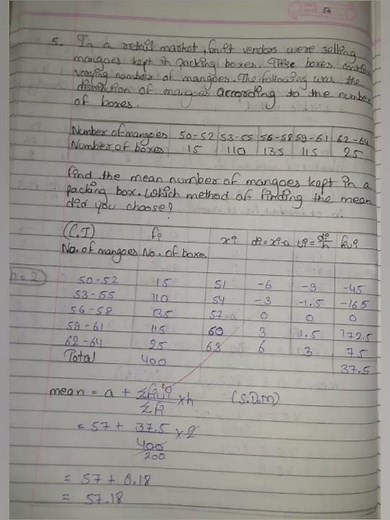 54
5. In a retail market, fruit vendors were selling
mangoes kept in packing boxes. These boxes contained
varying number of mangoes. The following was the
distribution of mangoes according to the number
of boxes.
Number of mangoes 50-52 53-55 56-58 59-61 62-64
Number of boxes 15 110 135 115 25
Find the mean number of mangoes kept in a
packing box. Which method of finding the mean
did you choose?
(C.I) fi xi di = xi-a ui = di/h fiui
No. of mangoes No. of boxes
h=2
50-52 15 51 -6 -3 -45
53-55 110 54 -3 -1.5 -165
56-58 135 57-a 0 0 0
59-61 115 60 3 1.5 172.5
62-64 25 63 6 3 75
Total 400 37.5
mean = a + Σfiui/Σfi × h (S.D.M)
= 57 + 37.5/400 × 2
200
= 57 + 0.18
= 57.18